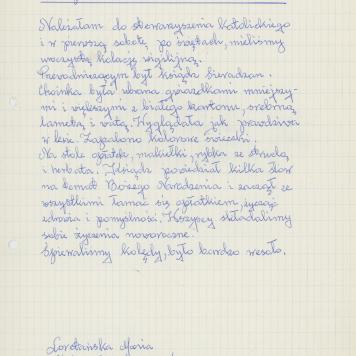 Należałam do stowarzyszenia Katolickiego
i w pierwszą sobotę po świętach, mieliśmy
uroczystą kolację wigilijną.
Przewodniczącym był ksiądz Sieradzan.
Choinka była ubrana gwiazdkami mniejszy-
mi i większymi z białego kartonu, srebrną
lametą i watą. Wyglądała jak prawdziwa
w lesie. Zapalono kolorowe świeczki.
Na stole opłatek, makiełki, rybka ze struclą
i herbata. Ksiądz powiedział kilka słów
na temat Bożego Narodzenia i zaczął ze
wszystkimi łamać się opłatkiem, życząc
zdrowia i pomyślności. Wszyscy składaliśmy
sobie życzenia noworoczne.
Śpiewaliśmy kolędy, było bardzo wesoło.
Maria